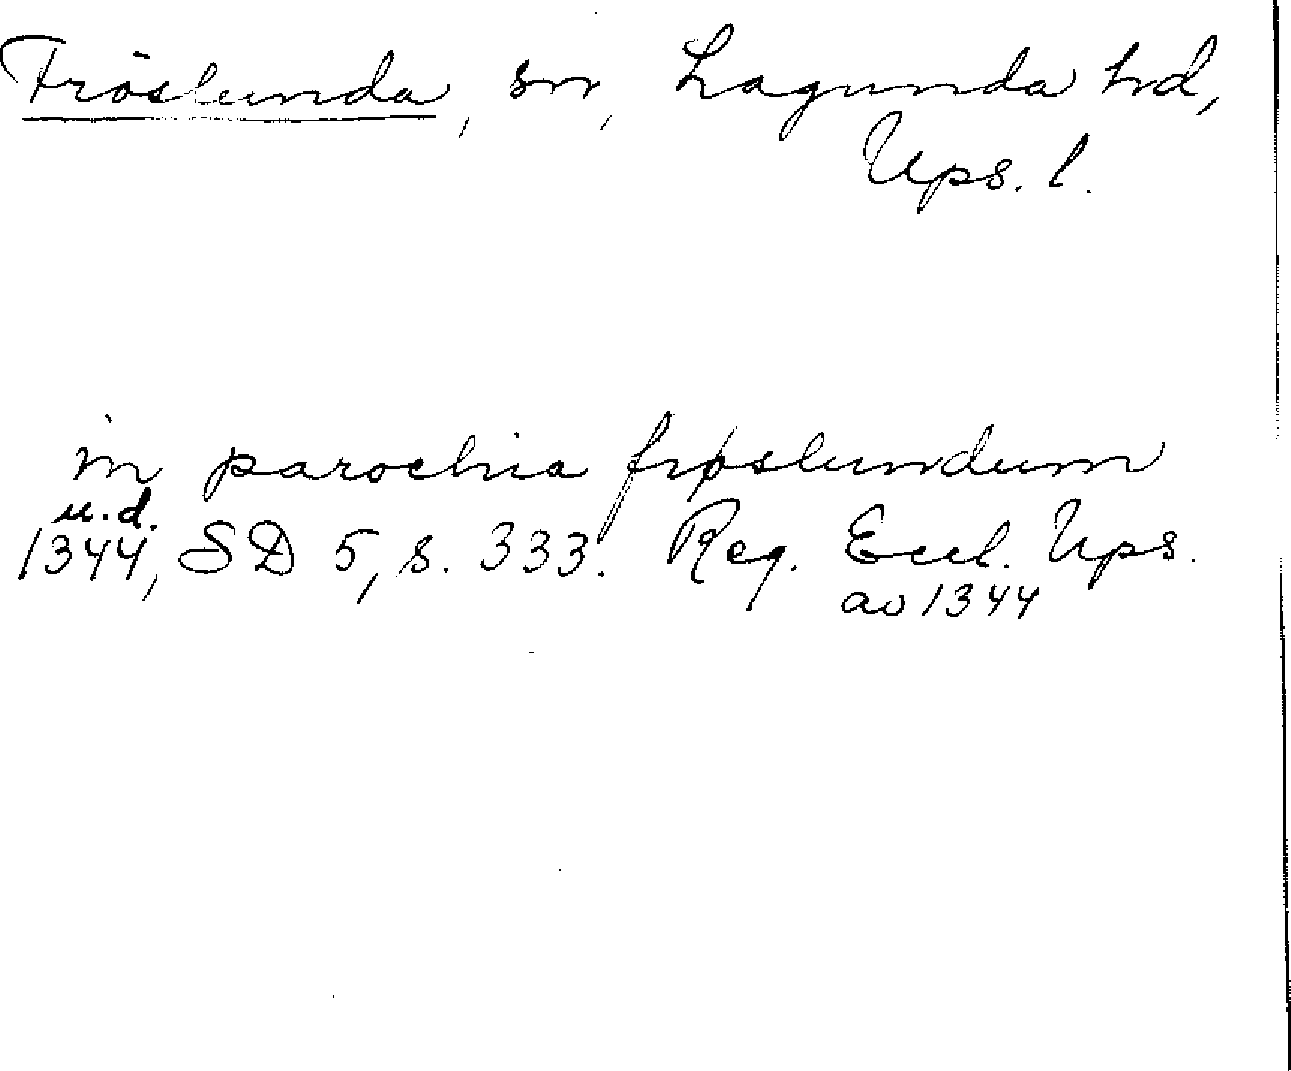 Fröslunda, sn, Lagunda hd,
Ups. l.
in parochia frøslundum
u.d.
1344, SD 5, s. 333. Reg. Eccl. Ups.
av 1344